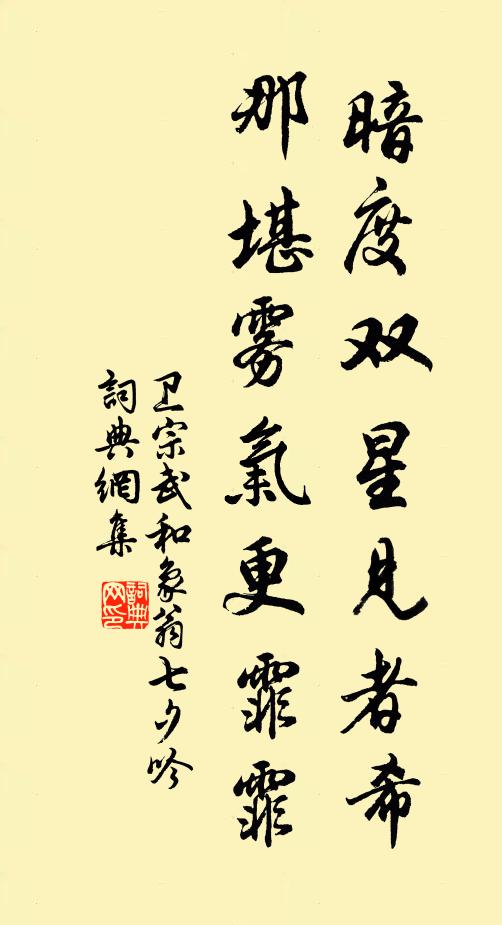 暗度双星見者希
那堪雾氣更霏霏
卫宗武和象翁七夕吟
詞典網集
詞典
网印